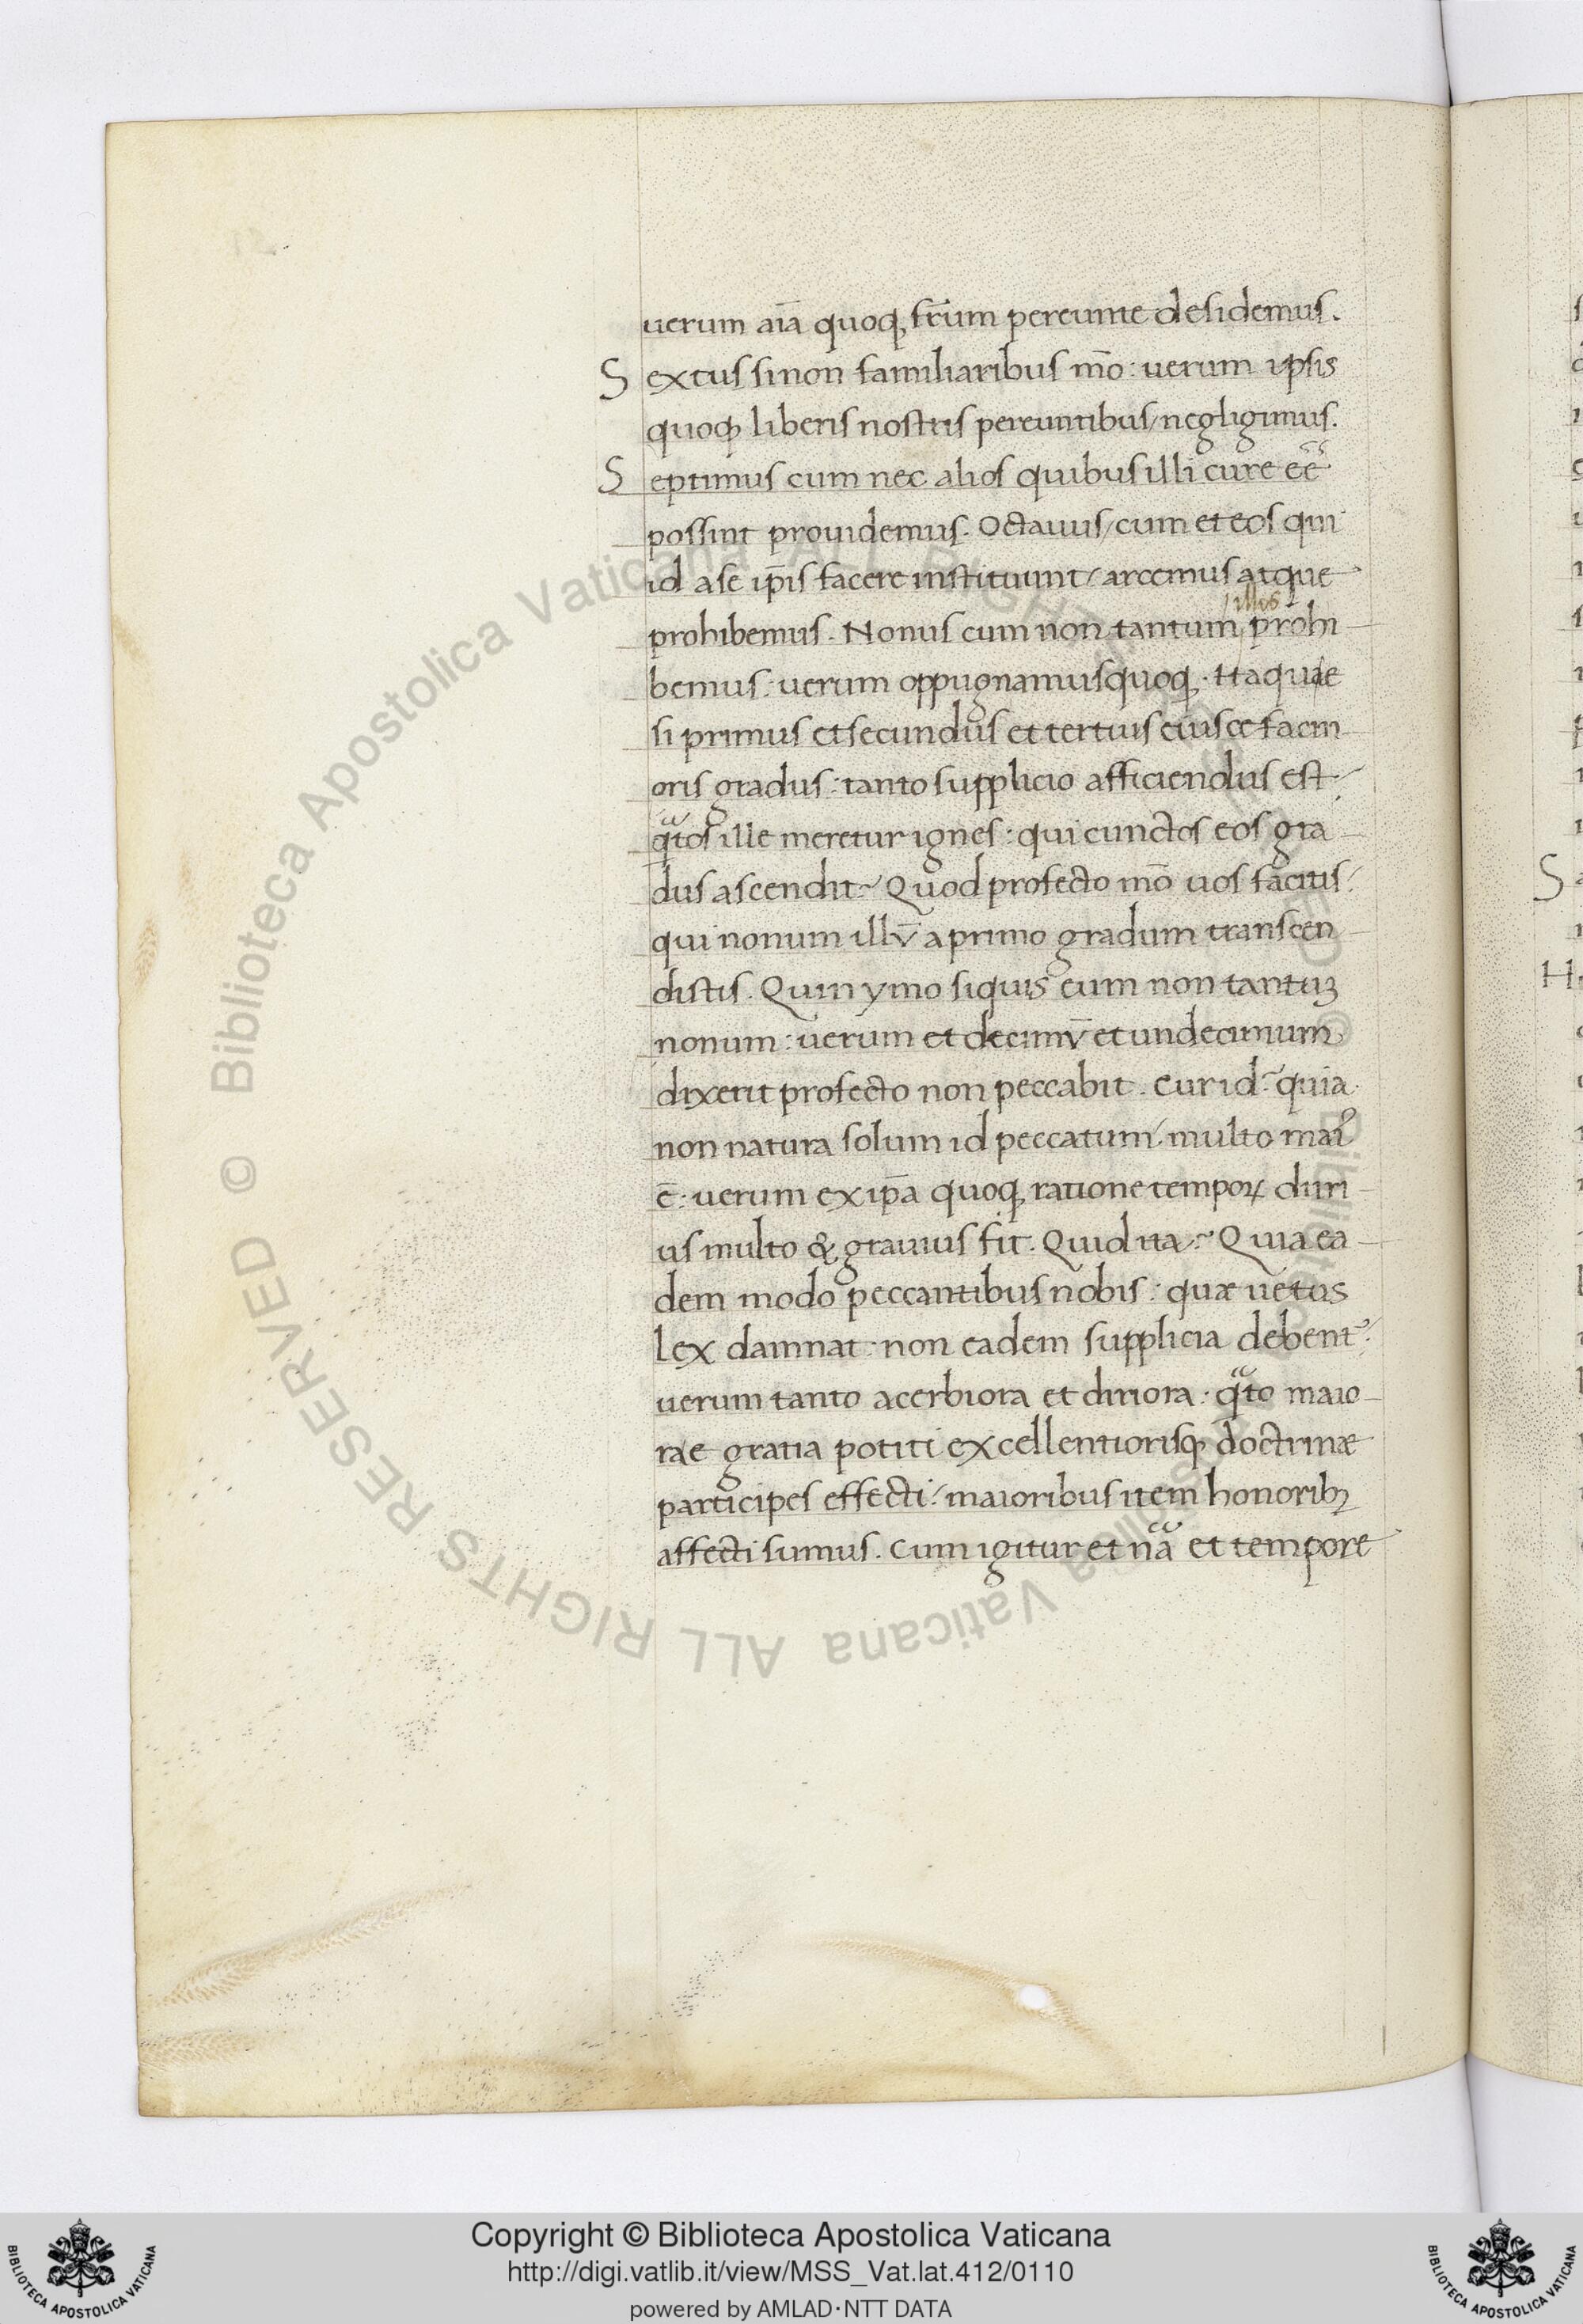 uerum aīa quoq; fr̄um pereunte desidemus.
Sextus si non familiaribus mō: uerum ipsis
quoq; liberis nostris pereuntibus/negligimus.
Septimus cum nec alios quibus illi cure eē
possint prouidemus. Octauus/cum et eos qui
id a se ip̄is facere instituunt/arcemus atque
illos
prohibemus. Nonus cum non tantum prohi
bemus: uerum oppugnamus quoq;. Itaque
si primus et secundus et tertius eiusce facin
oris gradus: tanto supplicio afficiendus est/
qͣtos ille meretur ignes: qui cunctos eos gra
dus ascendit? Quod profecto mō uos facitis/
qui nonum illū a primo gradum transcen
distis. Quin ymo siquis eum non tantuꝫ
nonum: uerum et decimū et undecimum
dixerit profecto non peccabit. Cur id? quia
non natura solum id peccatum/multo maiꝰ
ē: uerum ex ip̄a quoq; ratione tempoꝝ diri
us multo & grauius fit. Quid ita? Quia ea
dem modo peccantibus nobis: quæ uetus
lex damnat: non eadem supplicia debentᷣ/
uerum tanto acerbiora et diriora. qͣto maio
rae gratia potiti excellentiorisq; doctrinæ
participes effecti/maioribus item honoribꝫ
affecti sumus. Cum igitur et nͣa et tempore
Copyright © Biblioteca Apostolica Vaticana
http://digi.vatlib.it/view/MSS_Vat.lat.412/0110
powered by AMLAD·NTT DATA
BIBLIOTECA APOSTOLICA VATICANA
BIBLIOTECA APOSTOLICA VATICANA
© Biblioteca Apostolica Vaticana ALL RIGHTS RESERVED © Biblioteca Apostolica Vaticana ALL RIGHTS RESERVED